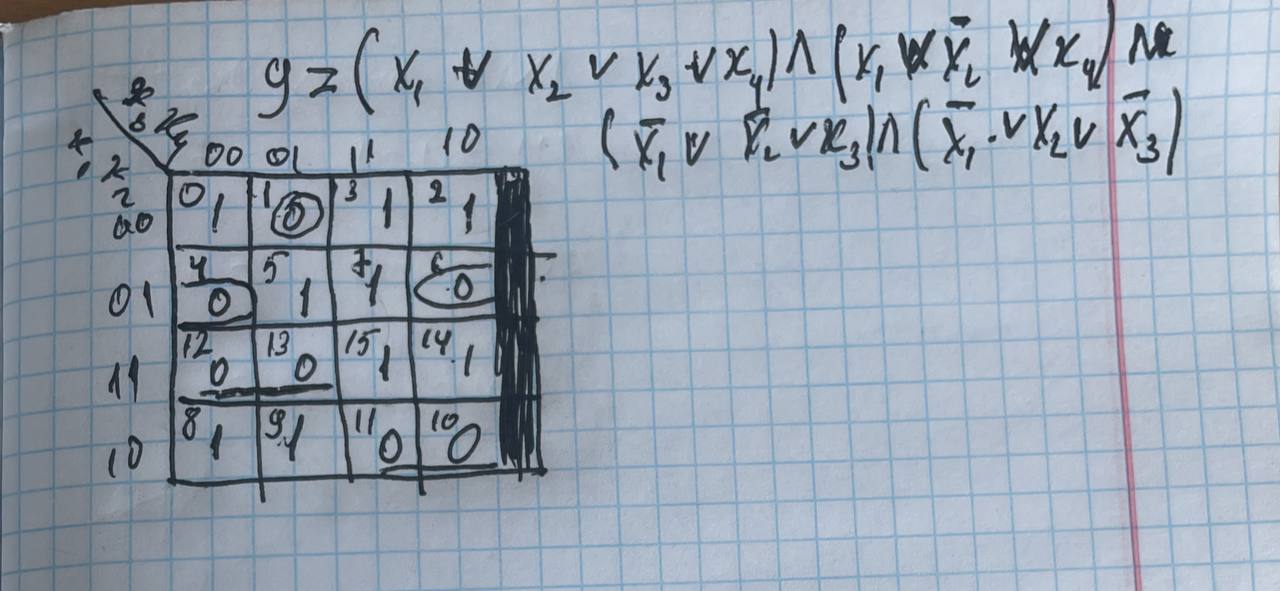 y = (x₁ ∨ x₂ ∨ x₃ ∨ x₄) ∧ (x₁ ∨ x̄₂ ∨ x₄) ∧
(x̄₁ ∨ x̄₂ ∨ x₃) ∧ (x̄₁ ∨ x₂ ∨ x̄₃)
00 01 11 10
00 0 1 1 0 3 1 2 1
01 4 0 5 1 7 1 6 0
11 12 0 13 0 15 1 14 1
10 8 1 9 1 11 0 10 0